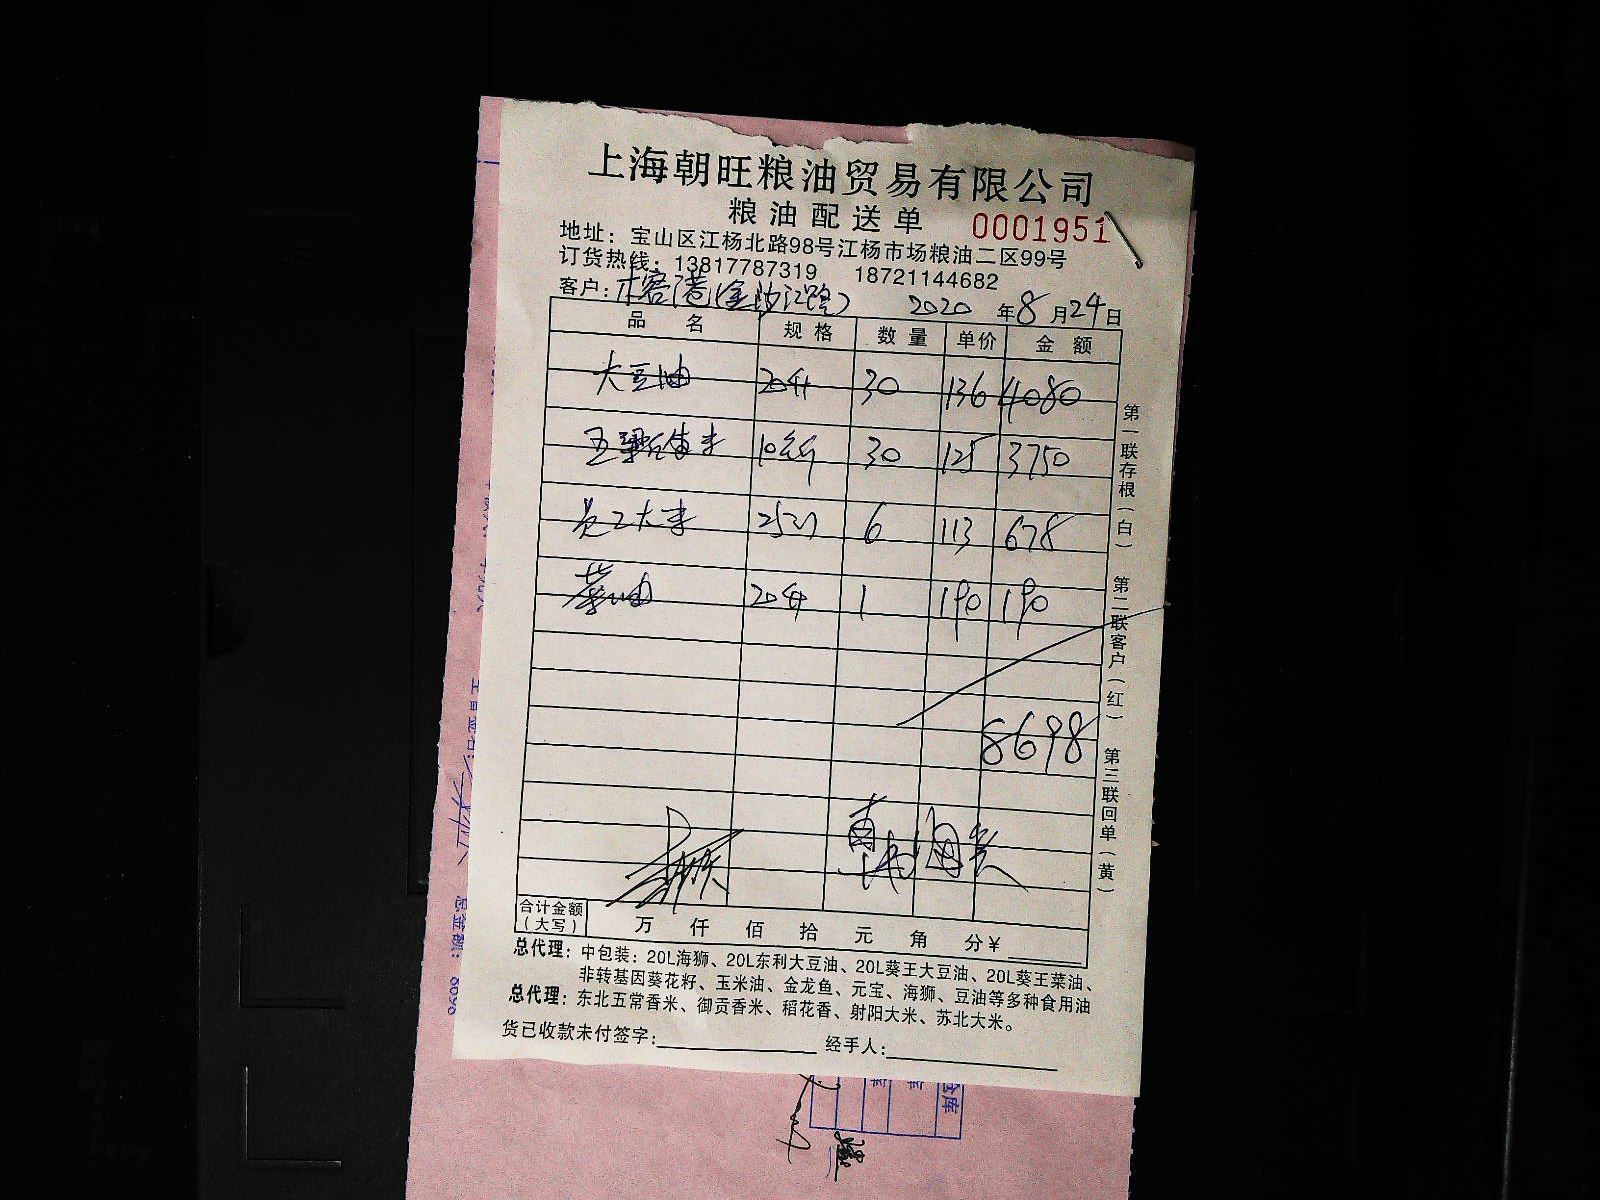 上海朝旺粮油贸易有限公司
粮油配送单 0001951
地址：宝山区江杨北路98号江杨市场粮油二区99号
订货热线：13817787319 18721144682
客户： (金沙江路) 2020 年 8 月 24 日
品名 规格 数量 单价 金额
大豆油 20升 30 136 4080
10公斤 30 125 3750
员工大米 25 6 113 678
菜油 20升 1 190 190
8698
合计金额（大写） 万 仟 佰 拾 元 角 分￥
总代理：中包装：20L海狮、20L东利大豆油、20L葵王大豆油、20L葵王菜油、
非转基因葵花籽、玉米油、金龙鱼、元宝、海狮、豆油等多种食用油
总代理：东北五常香米、御贡香米、稻花香、射阳大米、苏北大米。
货已收款未付签字： 经手人：
第一联存根（白） 第二联客户（红） 第三联回单（黄）
总金额： 8698